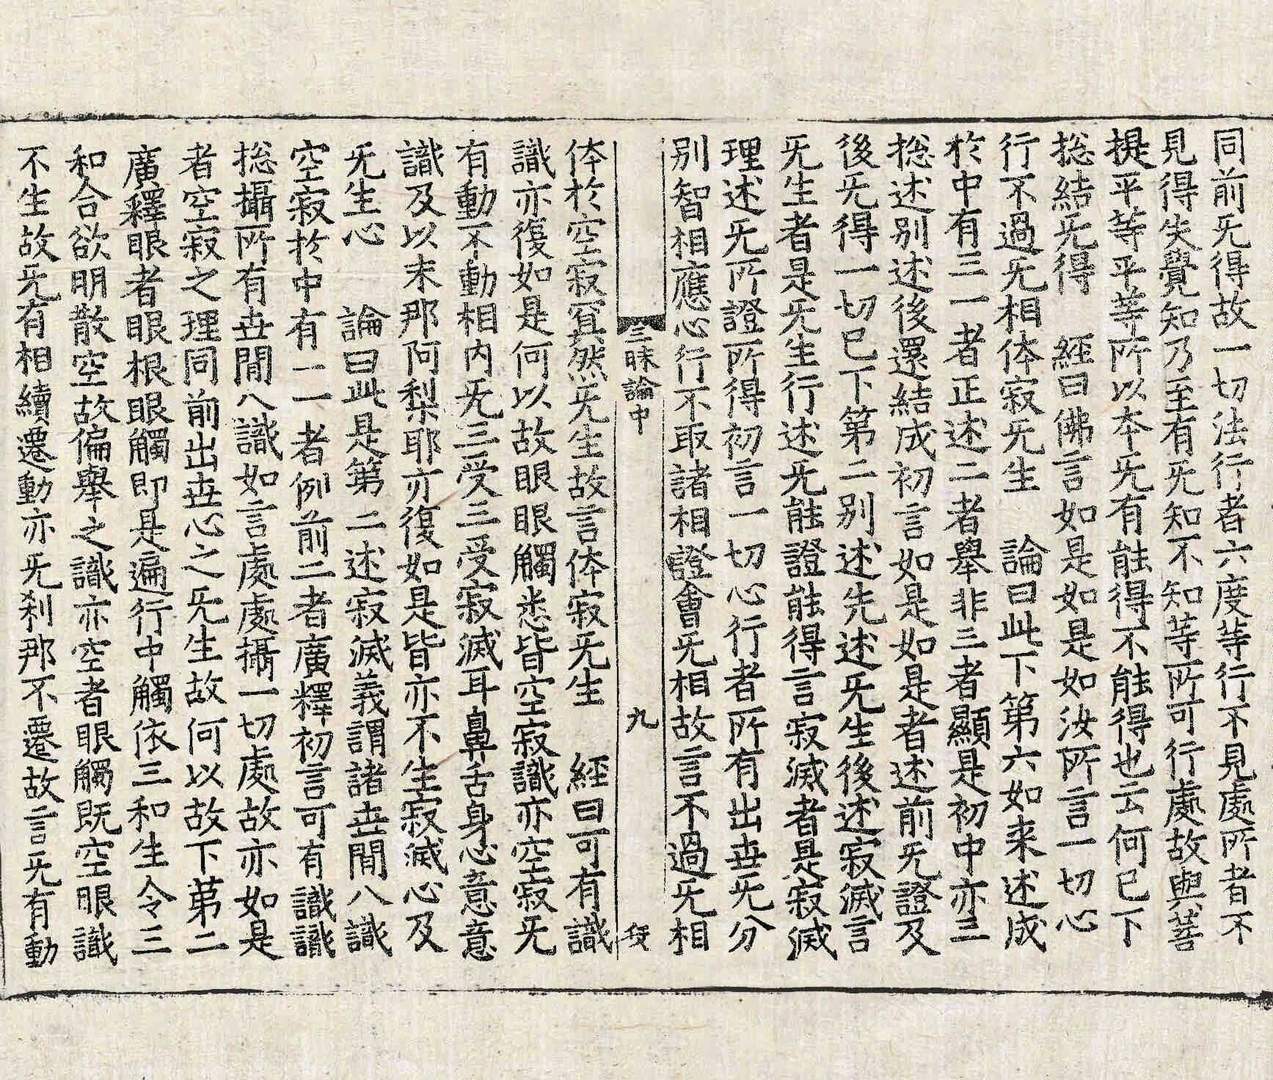 同前无得故一切法行者六度等行不見處所者不
見得失覺知乃至有无知不知等所可行處故與菩
提平等平等所以本无有能得不能得也云何已下
捴結无得　經曰佛言如是如是如汝所言一切心
行不過无相体寂无生　論曰此下第六如来述成
於中有三一者正述二者舉非三者顯是初中亦三
捴述別述後還結成初言如是如是者述前无證及
後无得一切已下第二別述先述无生後述寂滅言
无生者是无生行述无能證能得言寂滅者是寂滅
理述无所證所得初言一切心行者所有出世无分
別智相應心行不取諸相證會无相故言不過无相
三昧論中　九
体於空寂寘然无生故言体寂无生　經曰可有識
識亦復如是何以故眼眼觸悉皆空寂識亦空寂无
有動不動相內无三受三受寂滅耳鼻舌身心意意
識及以末那阿梨耶亦復如是皆亦不生寂滅心及
无生心　論曰此是第二述寂滅義謂諸世間八識
空寂於中有二一者例前二者廣釋初言可有識識
捴攝所有世間八識如言處處攝一切處故亦如是
者空寂之理同前出世心之无生故何以故下第二
廣釋眼者眼根眼觸即是遍行中觸依三和生令三
和合欲明散空故偏舉之識亦空者眼觸既空眼識
不生故无有相續遷動亦无刹那不遷故言无有動